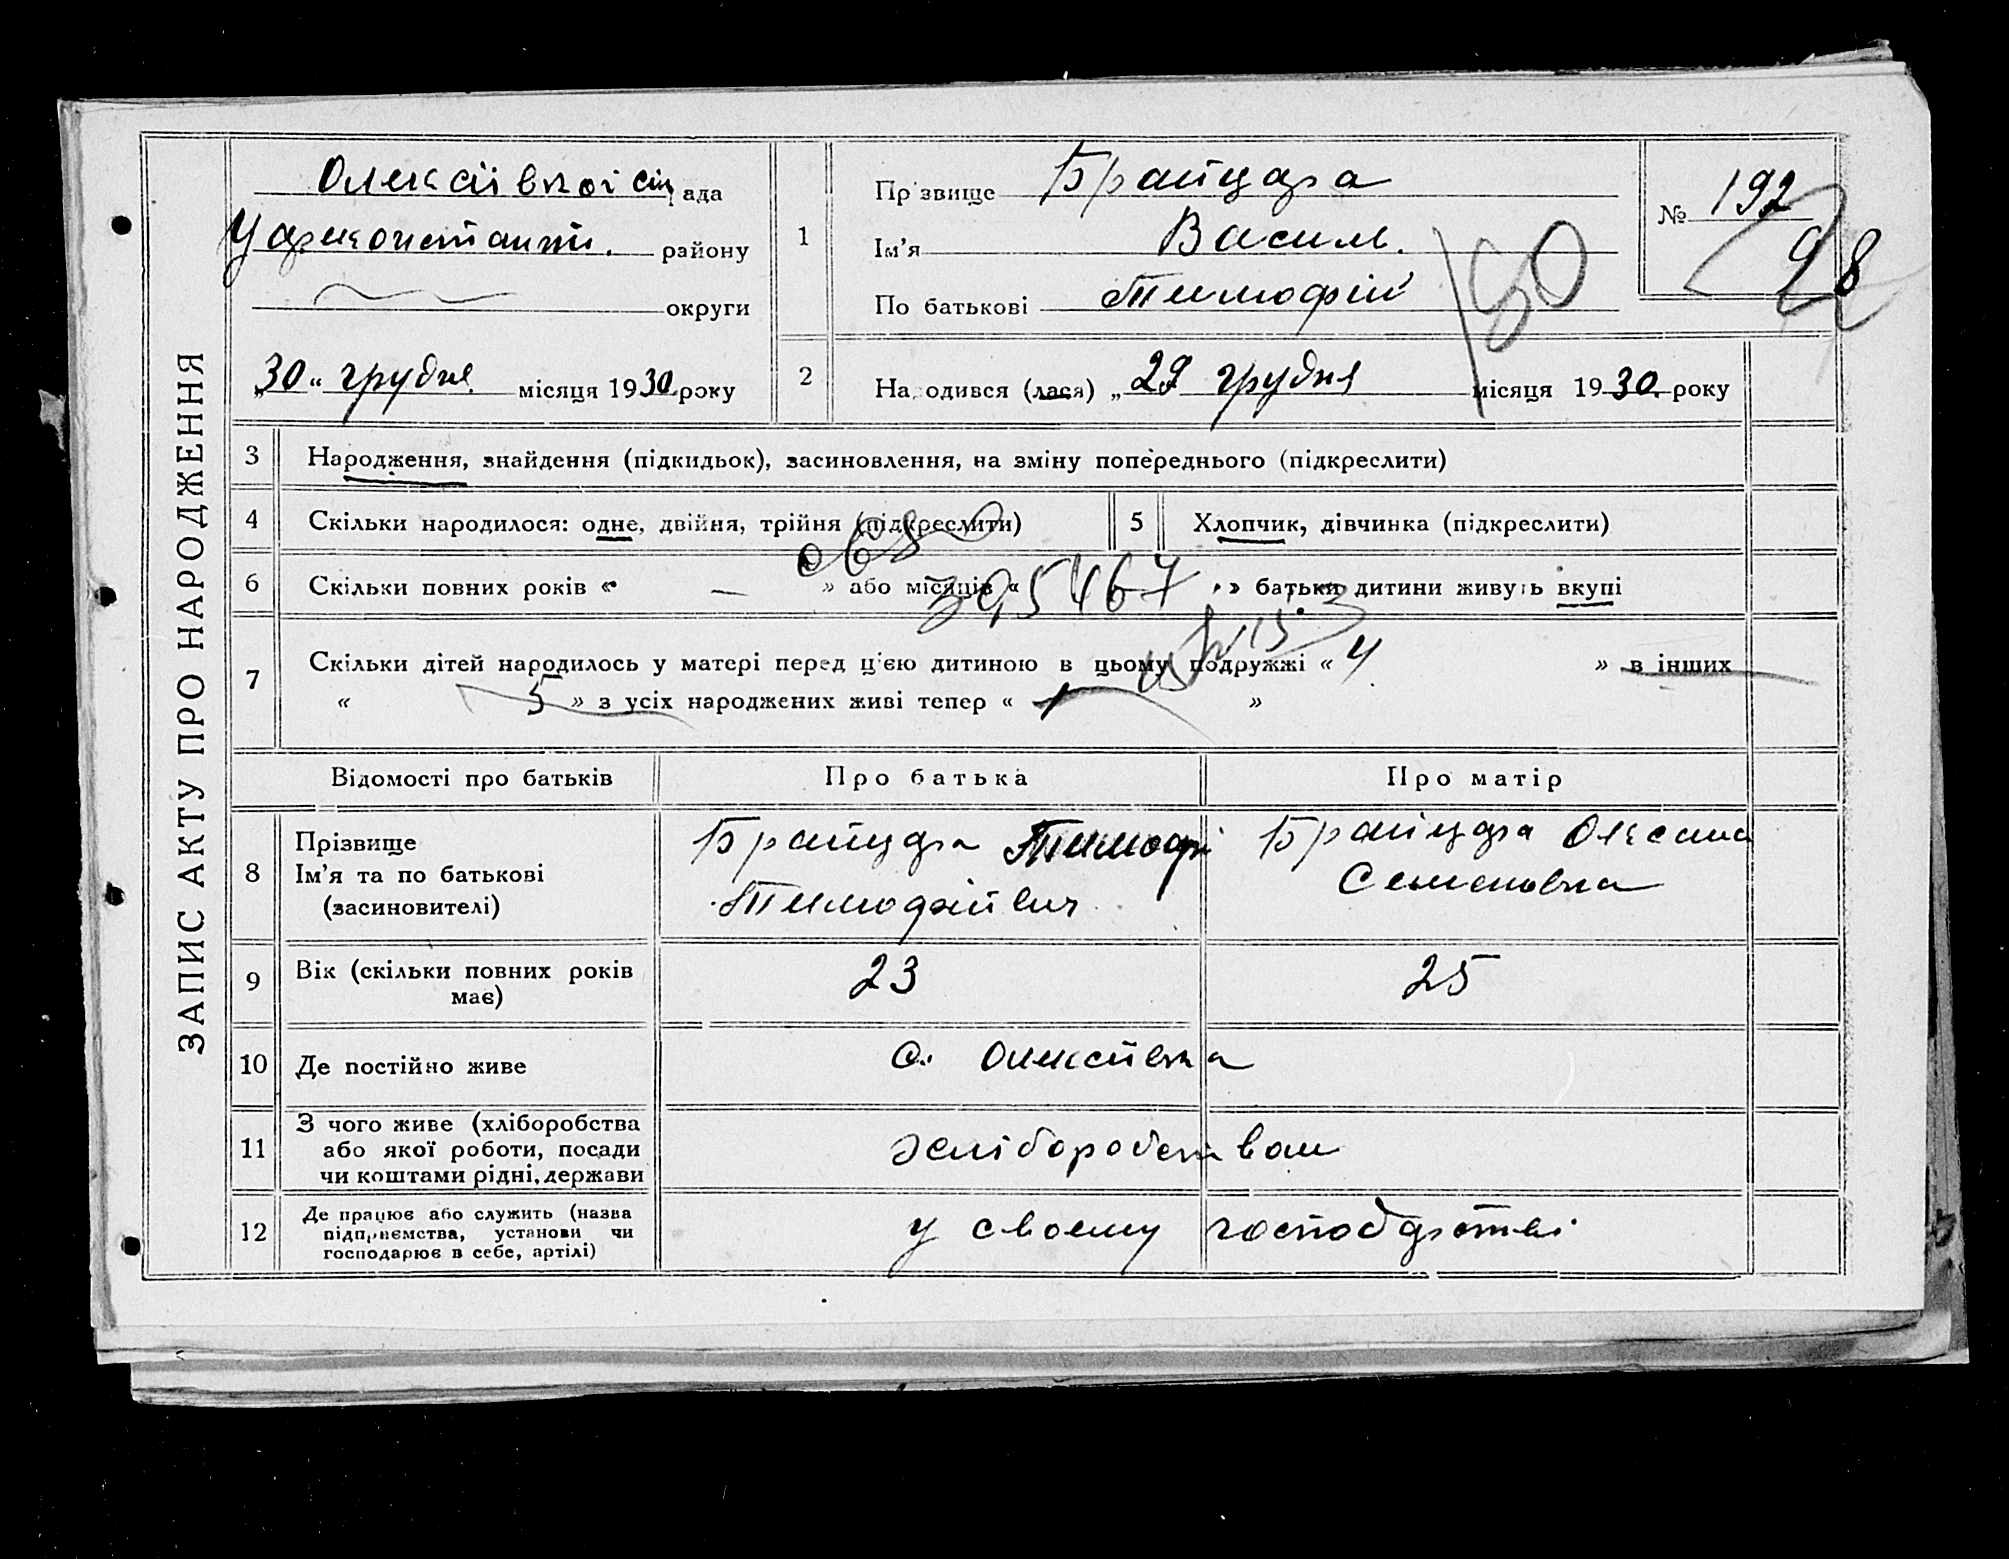 ЗАПИС АКТУ ПРО НАРОДЖЕННЯ
Олексіївкої сіл ада
Царекостянти. району
округи
„30“ грудня місяця 1930 року
1
Прізвище Брайцара
Ім'я Василь.
По батькові Тимофій
№ 192
98
50
2
Народився (лася) „29 грудня місяця 1930. року
3 Народження, знайдення (підкидьок), засиновлення, на зміну попереднього (підкреслити)
4 Скільки народилося: одне, двійня, трійня (підкреслити) 5 Хлопчик, дівчинка (підкреслити)
6 Скільки повних років « — » або місяців « » батьки дитини живуть вкупі
395467
7 Скільки дітей народилось у матері перед цією дитиною в цьому подружжі « 4 » в інших
« 5 » з усіх народжених живі тепер « »
Відомості про батьків Про батька Про матір
8 Прізвище Ім'я та по батькові (засновителі)
Брайцара Тимофі
Тимофійвич
Брайцара Оксана
Семеновна
9 Вік (скільки повних років має) 23 25
10 Де постійно живе с. Олексіївка
11 З чого живе (хліборобства або якої роботи, посади чи коштами рідні, держави хліборобством
12 Де працює або служить (назва підприємства, установи чи господарює в себе, артілі) у своему господарстві